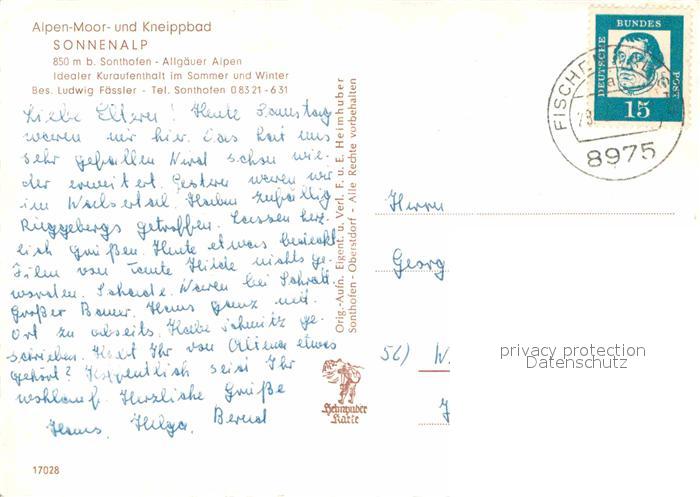 Alpen-Moor- und Kneippbad
SONNENALP
850 m b. Sonthofen - Allgäuer Alpen
Idealer Kuraufenthalt im Sommer und Winter
Bes. Ludwig Fässler - Tel. Sonthofen 08321-631
Liebe Eltern! Heute Samstag
waren wir hier. Das hat uns
sehr gefallen Wird schon wie-
der erweitert. Gestern waren wir
im Walsertal. Haben zufällig
Rüggebergs getroffen. Lassen herz-
lich Grüßen. Heute etwas bedeckt
Film von Tante Hilde nichts ge-
worden. Schade. Waren bei
Großer Bauer. Haus ganz nett
Ort zu abseits. Habe Schmitz ge-
schrieben. Habt Ihr von Altena etwas
gehört? Hoffentlich seid Ihr
wohlauf. Herzliche Grüße
Hans, Helga, Bernd
17028
Orig.-Aufn. Eigent. u. Verl. F. u. E. Heimhuber
Sonthofen - Oberstdorf - Alle Rechte vorbehalten
Heimhuber
Karte
DEUTSCHE BUNDES POST
15
FISCHE
8975
Herrn
Georg
56) W.
J
privacy protection
Datenschutz